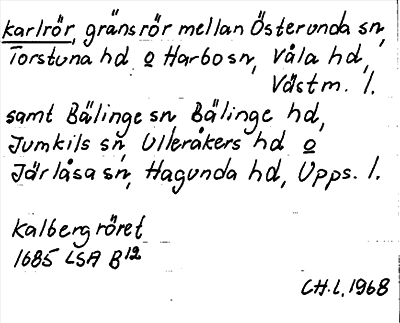 karlrör, gränsrör mellan Österunda sn,
Torstuna hd o Harbo sn, Våla hd,
Västm. l.
samt Bälinge sn Bälinge hd,
Jumkils sn, Ulleråkers hd o
Järlåsa sn, Hagunda hd, Upps. l.
Kalbergröret
1685 LSA B12
CH.L. 1968